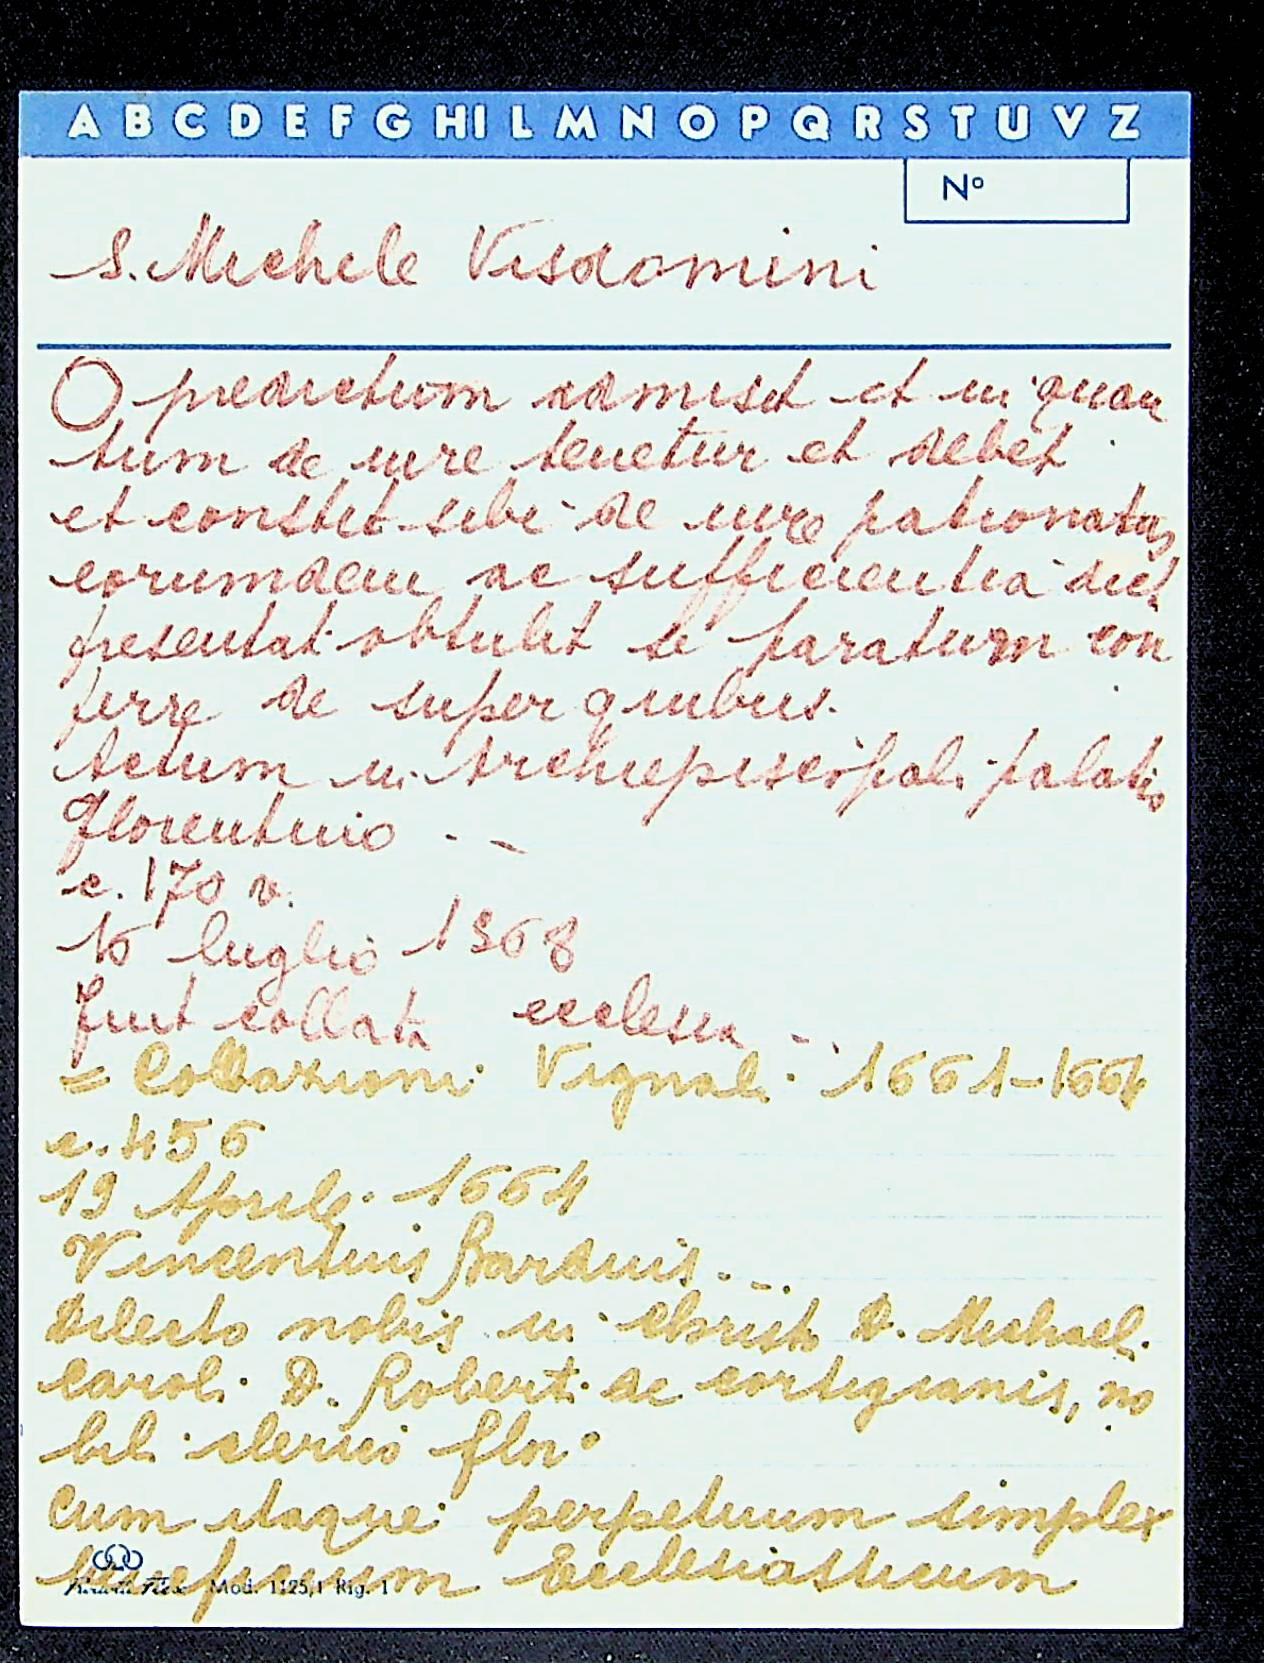 A B C D E F G H I L M N O P Q R S T U V Z
Nº
S. Michele Visdomini
O predictum admisit et in quan
tum de iure tenetur et debet
et constit sibi de iure patronatus
eorumdem ac sufficientia dict
presentat obtulit se paratum con
ferre de super quibus.
Actum in Archiepiscopali palatio
florentino . _
c. 170 v.
16 luglio 1568
fuit collata ecclesia ...
= Collazioni Vignali 1661-1664
c. 456
19 Aprile 1664
Vincentius Barduis . _ .
Dilecto nobis in christo D. Michael.
Caroli D. Roberti de cortigianis, no
bili clerico flor°
Cum itaque perpetuum simplex
beneficium Ecclesiasticum
Mod. 1125/1 Rig. 1